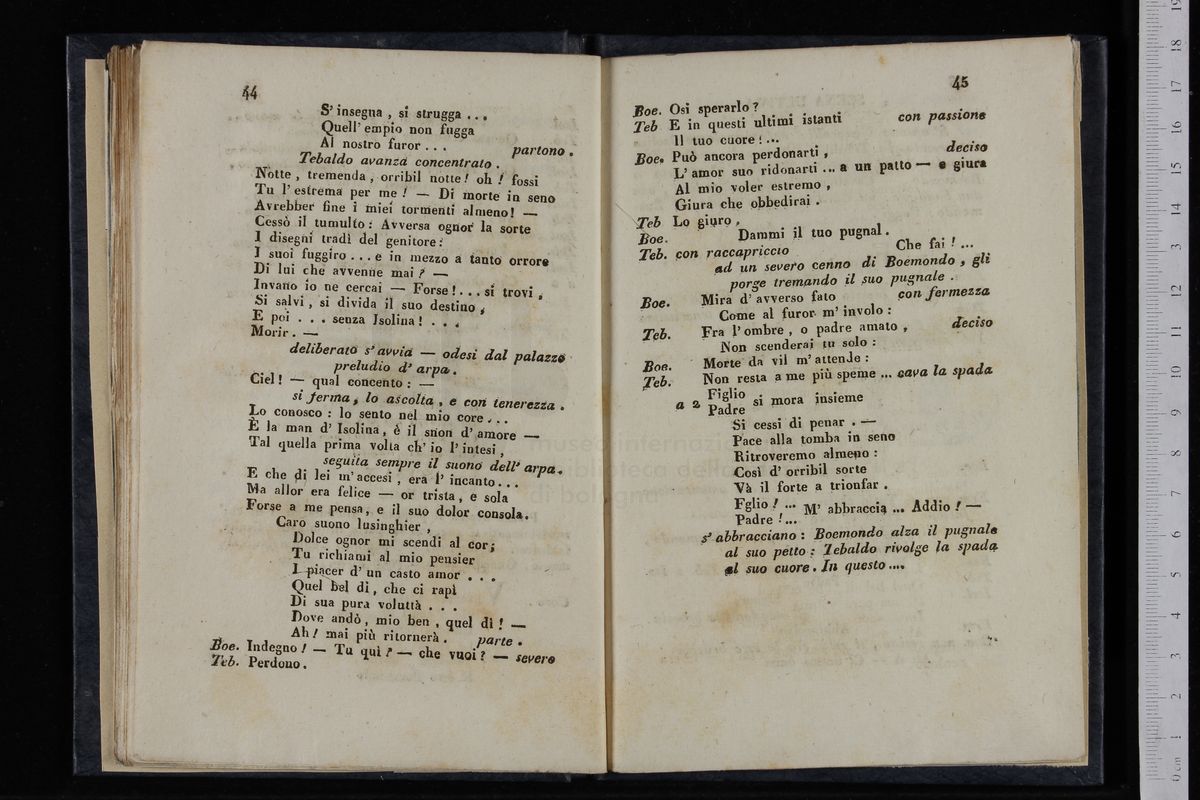 44
S' insegna , si strugga . . .
Quell' empio non fugga
Al nostro furor . . . partono .
Tebaldo avanza concentrato .
Notte , tremenda , orribil notte ! oh ! fossi
Tu l' estrema per me ! — Di morte in seno
Avrebber fine i miei tormenti almeno ! —
Cessò il tumulto : Avversa ognor la sorte
I disegni tradì del genitore :
I suoi fuggiro . . . e in mezzo a tanto orrore
Di lui che avvenne mai ? —
Invano io ne cercai — Forse ! . . . si trovi ,
Si salvi , si divida il suo destino ,
E poi . . . senza Isolina ! . . .
Morir . —
deliberato s' avvia — odesi dal palazzo
preludio d' arpa .
Ciel ! — qual concento : —
si ferma , lo ascolta , e con tenerezza .
Lo conosco : lo sento nel mio core . . .
E la man d' Isolina , è il suon d' amore —
Tal quella prima volta ch' io l' intesi ,
seguita sempre il suono dell' arpa .
E che di lei m' accesi , era l' incanto . . .
Ma allor era felice — or trista , e sola
Forse a me pensa , e il suo dolor consola .
Caro suono lusinghier ,
Dolce ognor mi scendi al cor ;
Tu richiami al mio pensier
I piacer d' un casto amor . . .
Quel bel dì , che ci rapì
Di sua pura voluttà . . .
Dove andò , mio ben , quel dì ! —
Ah ! mai più ritornerà . parte .
Boe. Indegno ! — Tu quì ? — che vuoi ? — severo
Teb. Perdono .
45
Boe. Osi sperarlo ?
Teb E in questi ultimi istanti con passione
Il tuo cuore ! ...
Boe. Può ancora perdonarti , deciso
L' amor suo ridonarti ... a un patto — e giura
Al mio voler estremo ,
Giura che obbedirai .
Teb Lo giuro ,
Boe. Dammi il tuo pugnal .
Teb. con raccapriccio Che fai ! ...
ad un severo cenno di Boemondo , gli
porge tremando il suo pugnale .
Boe. Mira d' avverso fato con fermezza
Come al furor m' involo :
Teb. Fra l' ombre , o padre amato , deciso
Non scenderai tu solo :
Boe. Morte da vil m' attende :
Teb. Non resta a me più speme ... cava la spada
a 2 Figlio
Padre si mora insieme
Si cessi di penar . —
Pace alla tomba in seno
Ritroveremo almeno :
Così d' orribil sorte
Và il forte a trionfar .
Fglio ! ... M' abbraccia ... Addio ! —
Padre ! ...
s' abbracciano : Boemondo alza il pugnale
al suo petto : Tebaldo rivolge la spada
al suo cuore . In questo ....